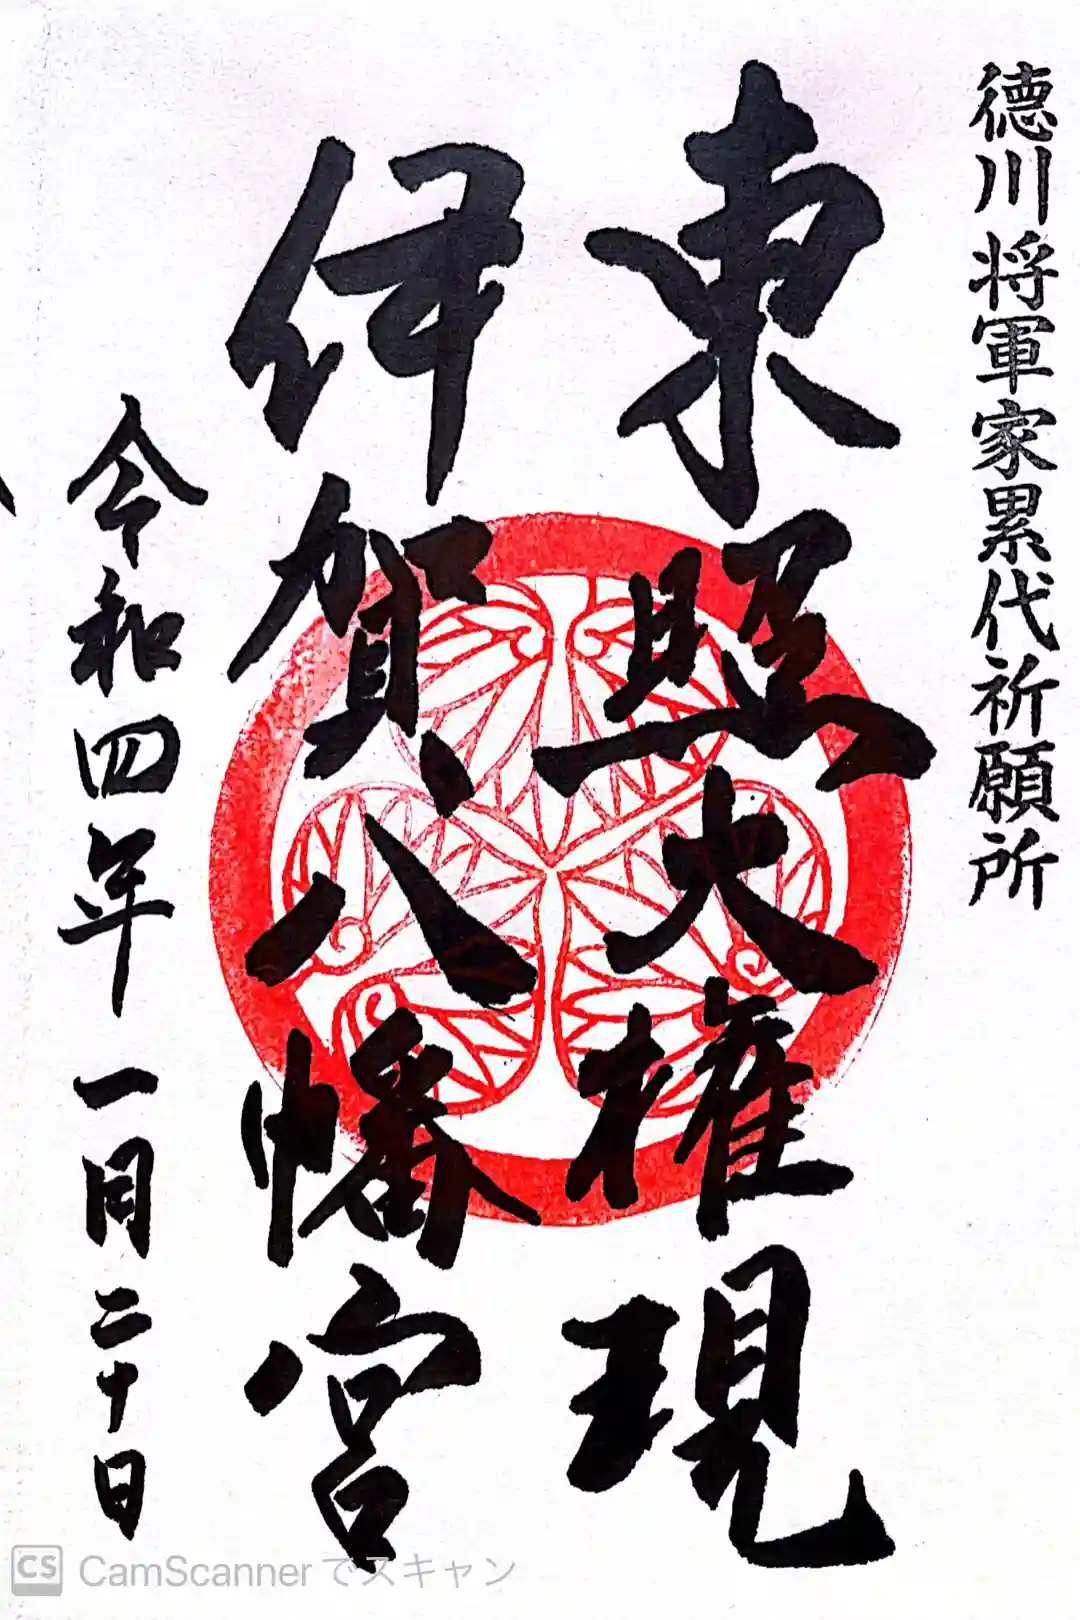 徳川将軍家累代祈願所
東照大権現
伊賀八幡宮
令和四年一月二十日
CS CamScannerでスキャン